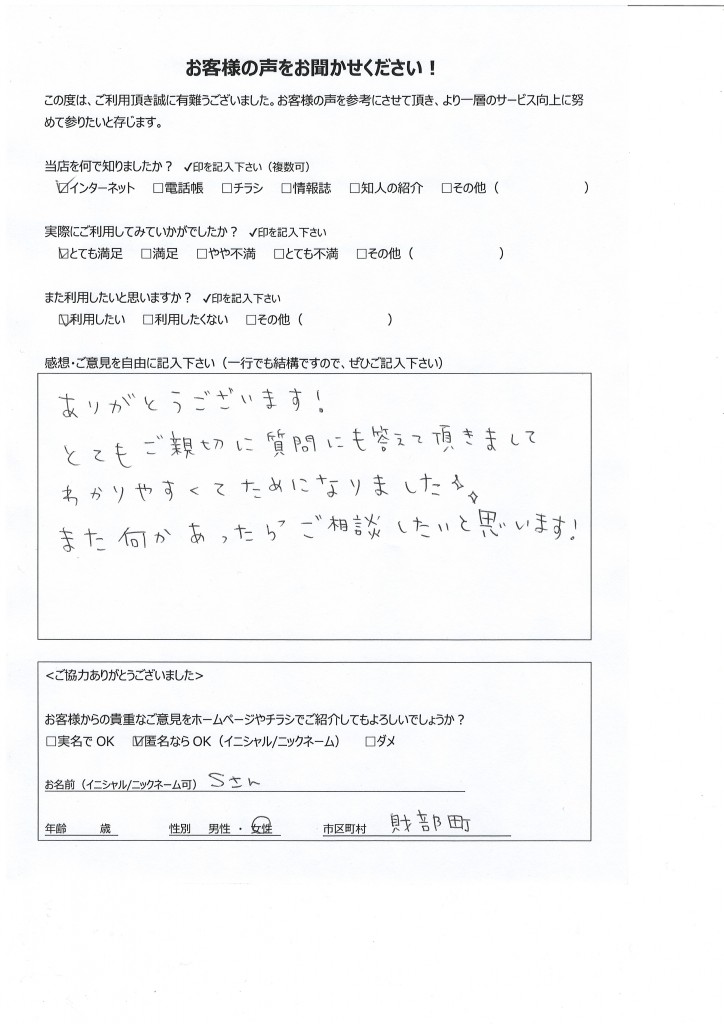 お客様の声をお聞かせください！
この度は、ご利用頂き誠に有難うございました。お客様の声を参考にさせて頂き、より一層のサービス向上に努
めて参りたいと存じます。
当店を何で知りましたか？ ✓印を記入下さい（複数可）
☑インターネット □電話帳 □チラシ □情報誌 □知人の紹介 □その他（ ）
実際にご利用してみていかがでしたか？ ✓印を記入下さい
☑とても満足 □満足 □やや不満 □とても不満 □その他（ ）
また利用したいと思いますか？ ✓印を記入下さい
☑利用したい □利用したくない □その他（ ）
感想・ご意見を自由に記入下さい（一行でも結構ですので、ぜひご記入下さい）
ありがとうございます！
とてもご親切に質問にも答えて頂きまして
わかりやすくてためになりました✧✧
また何かあったらご相談したいと思います！
<ご協力ありがとうございました>
お客様からの貴重なご意見をホームページやチラシでご紹介してもよろしいでしょうか？
□実名でOK ☑匿名ならOK（イニシャル/ニックネーム） □ダメ
お名前（イニシャル/ニックネーム可） Sさん
年齢 歳 性別 男性 ・ 女性 市区町村 財部町